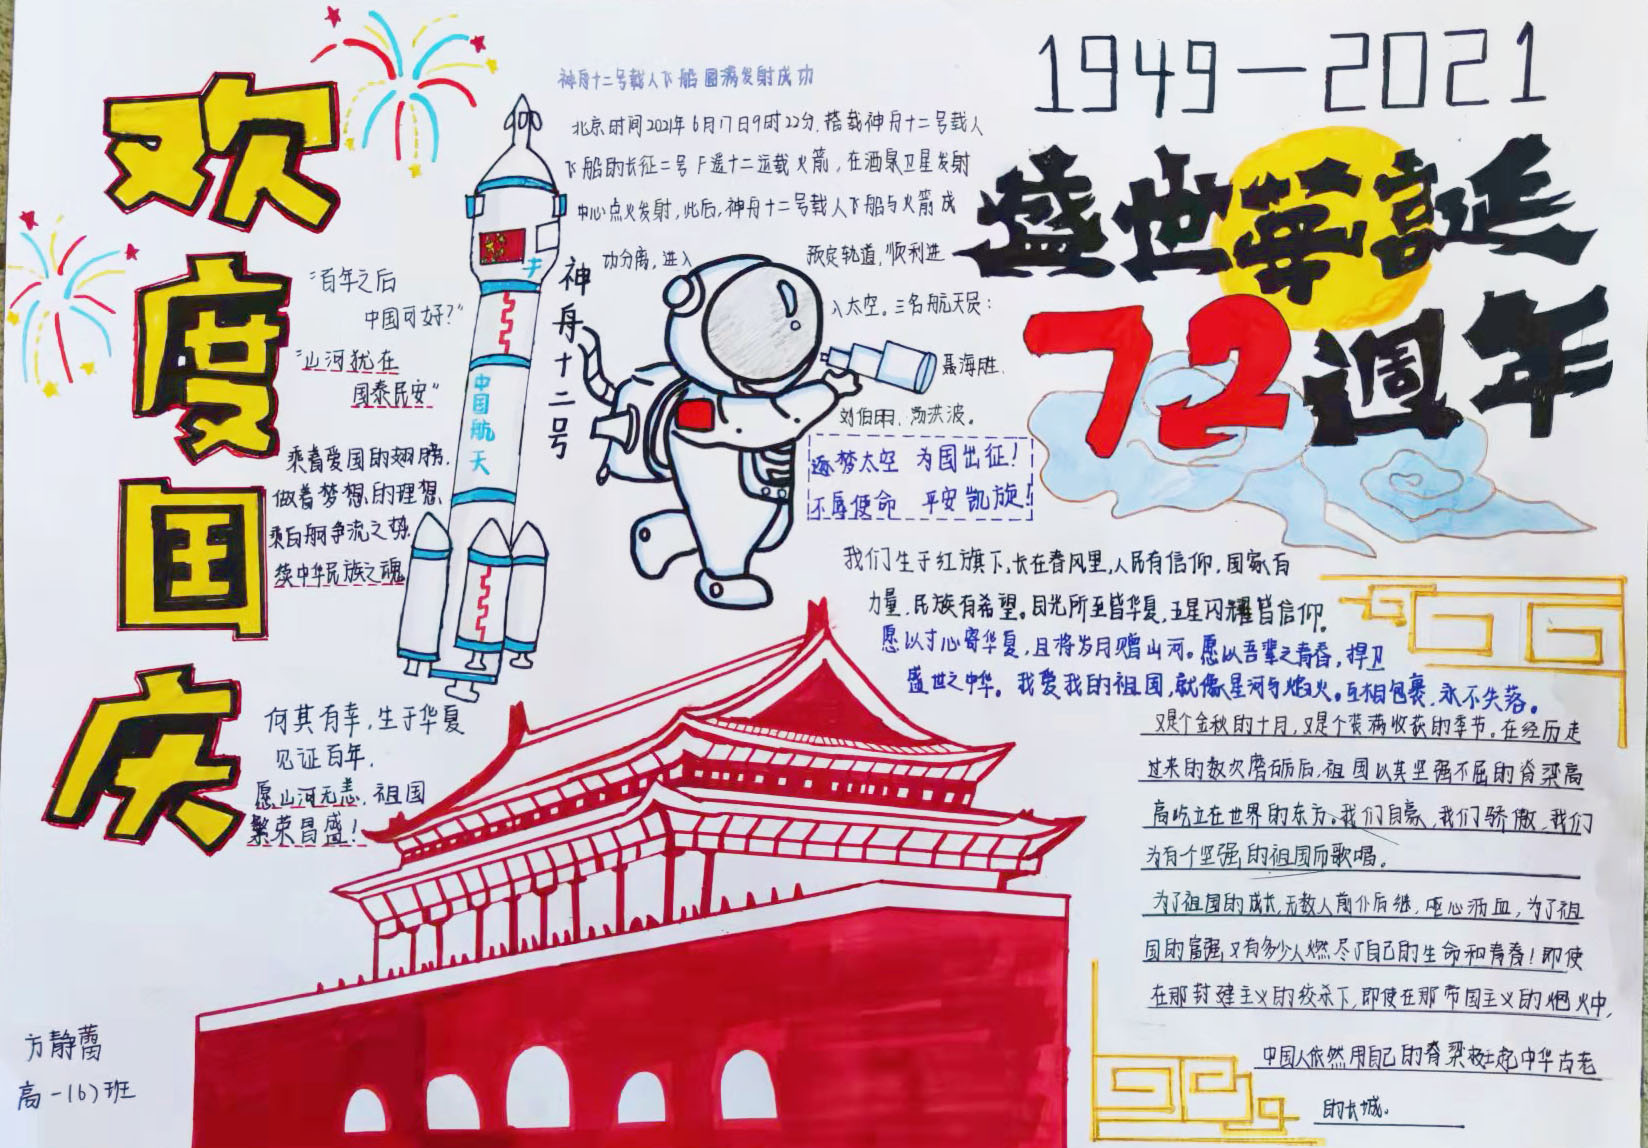 欢度国庆
1949—2021
盛世華誕
72週年
神舟十二号载人飞船圆满发射成功
北京时间2021年6月17日9时22分,搭载神舟十二号载人
飞船的长征二号F遥十二运载火箭,在酒泉卫星发射
中心点火发射,此后,神舟十二号载人飞船与火箭成
功分离,进入 预定轨道,顺利进
入太空。三名航天员:
聂海胜、
刘伯明、汤洪波。
神舟十二号
中国航天
“百年之后
中国可好?”
“山河犹在
国泰民安”
乘着爱国的翅膀,
做着梦想的理想,
乘百舸争流之势,
续中华民族之魂
逐梦太空 为国出征!
不辱使命 平安凯旋!
我们生于红旗下,长在春风里,人民有信仰,国家有
力量,民族有希望。目光所至皆华夏,五星闪耀皆信仰。
愿以寸心寄华夏,且将岁月赠山河。愿以吾辈之青春,捍卫
盛世之中华。我爱我的祖国,就像星河与焰火。互相包裹,永不失落。
何其有幸,生于华夏
见证百年,
愿山河无恙,祖国
繁荣昌盛!
又是个金秋的十月,又是个装满收获的季节。在经历走
过来的数次磨砺后,祖国以其坚强不屈的脊梁高
高屹立在世界的东方。我们自豪,我们骄傲,我们
为有个坚强的祖国而歌唱。
为了祖国的成长,无数人前仆后继,呕心沥血,为了祖
国的富强,又有多少人燃尽了自己的生命和青春!即使
在那封建主义的绞杀下,即使在那帝国主义的炮火中,
中国人依然用自己的脊梁起中华古老
的长城。
方静蕾
高一(6)班